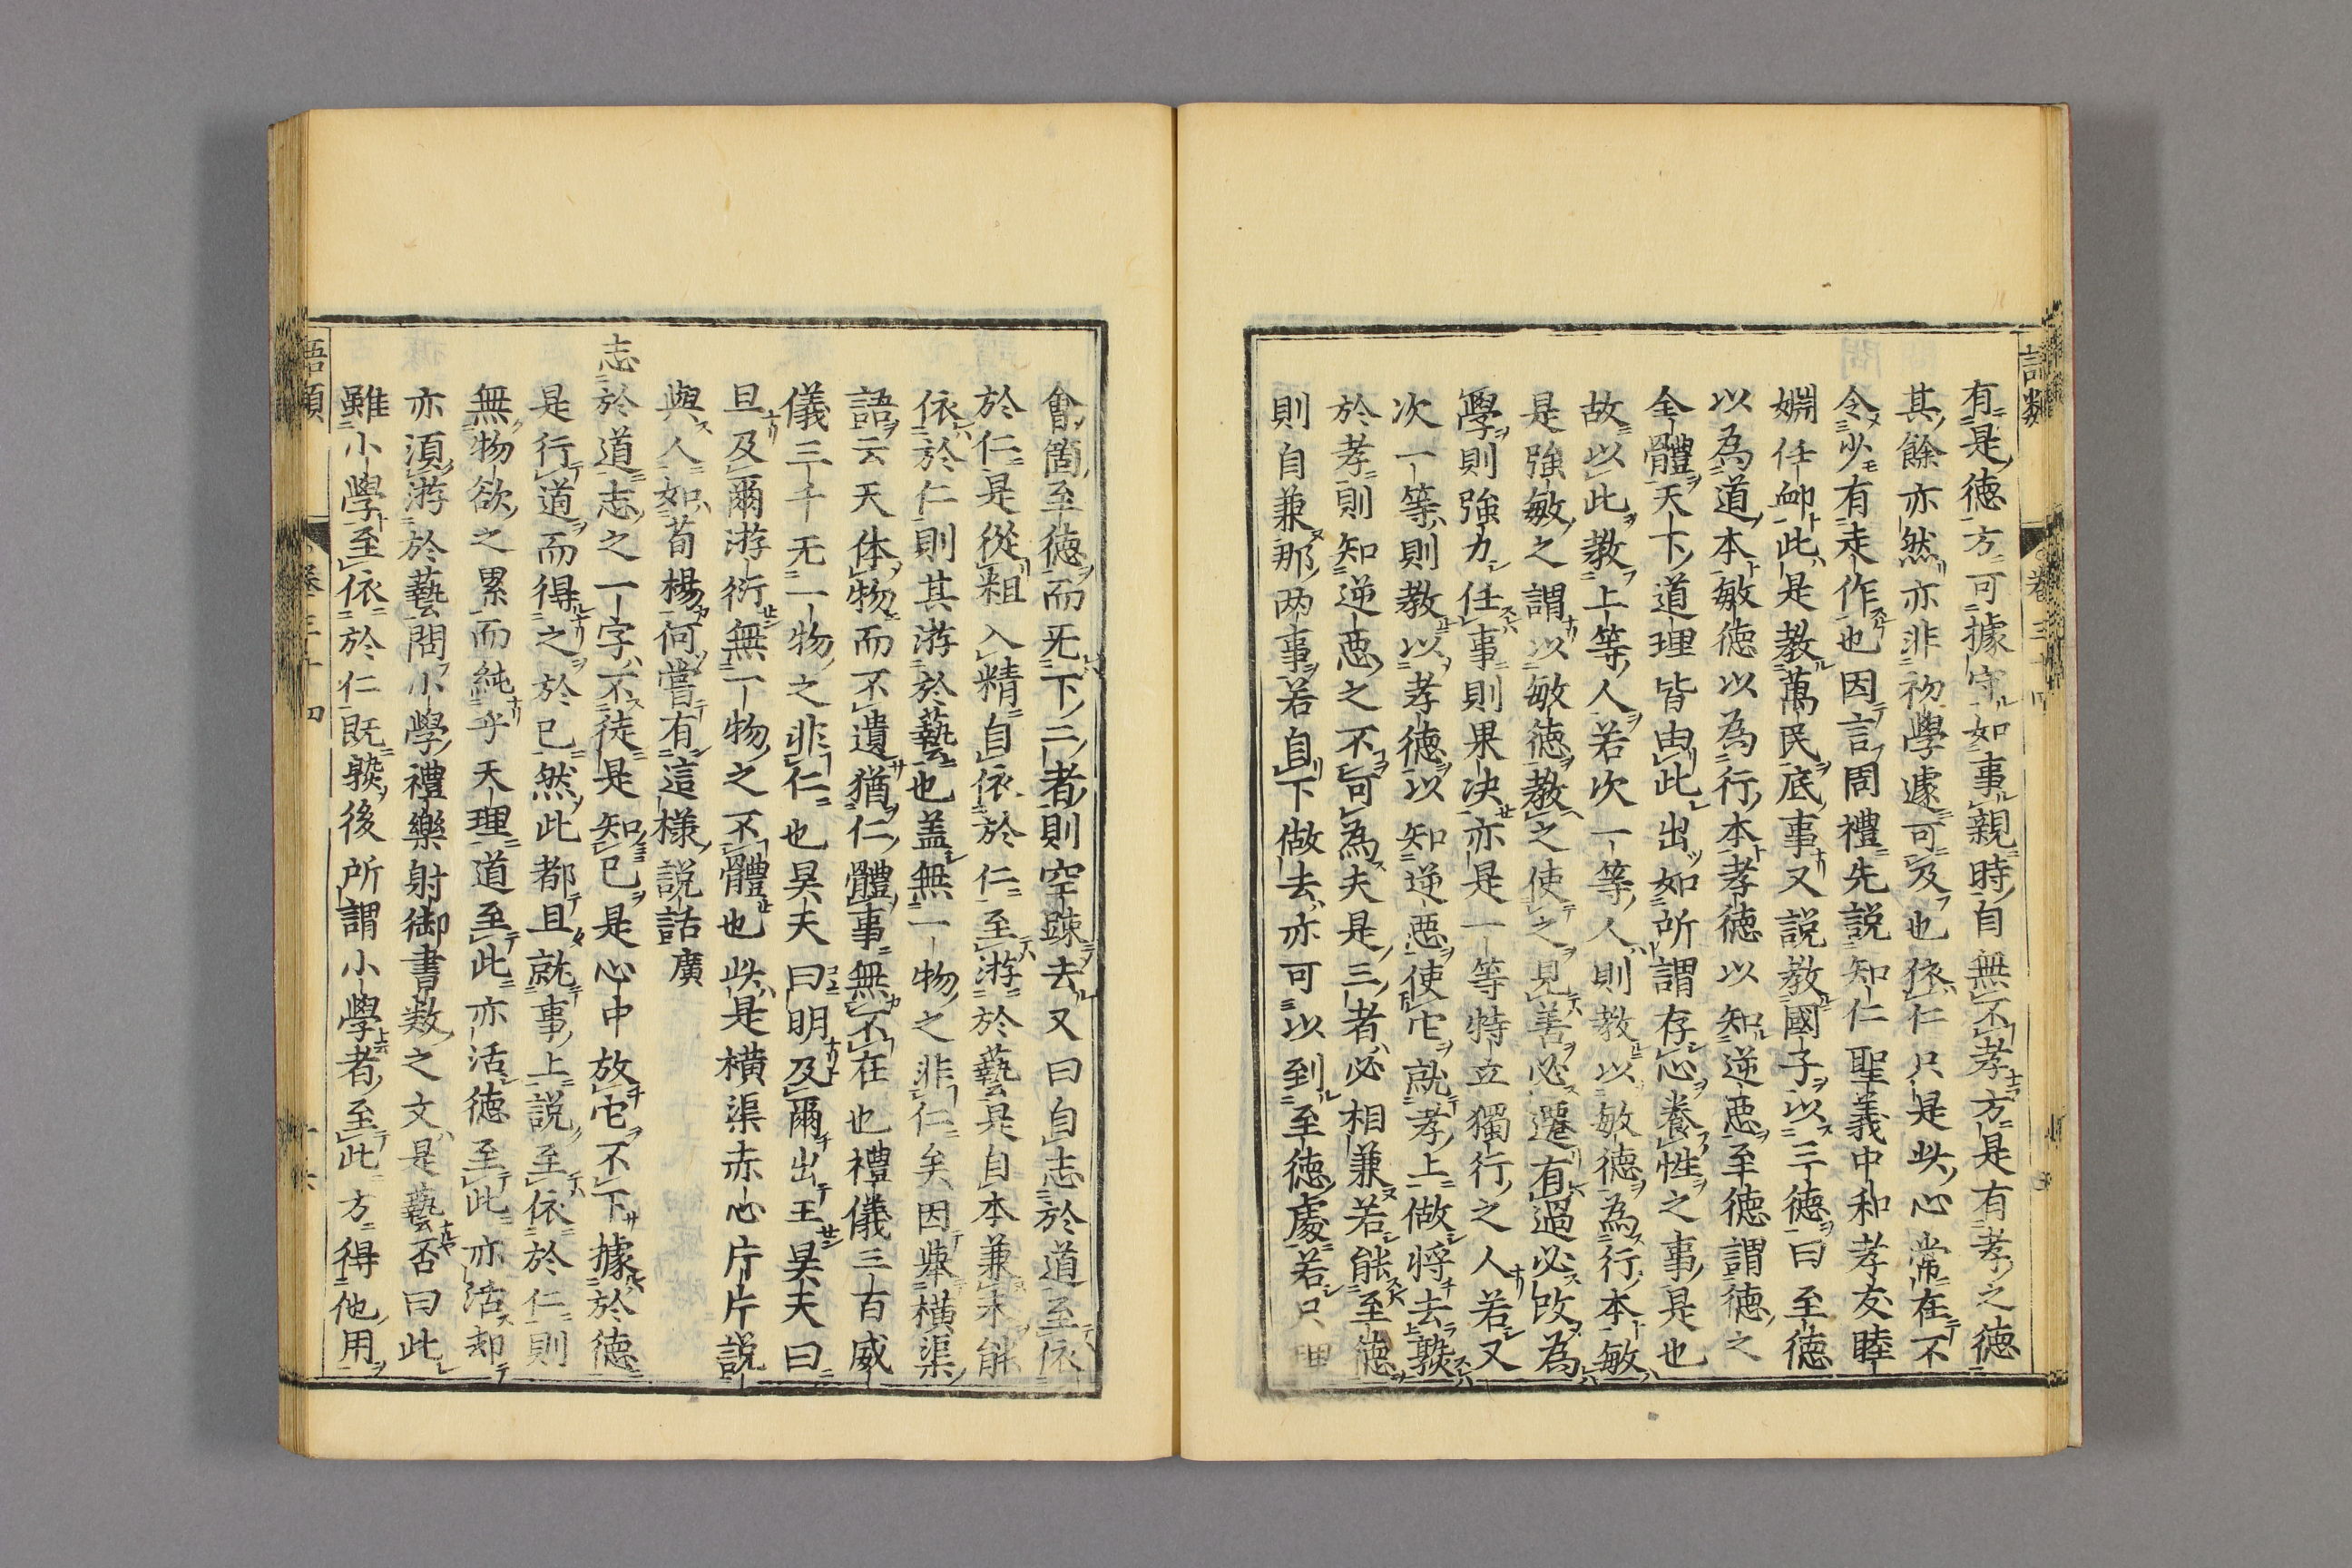 有是徳方可據守如事親時自無不孝方是有孝之徳
其餘亦然亦非初學遽可及也依仁只是此心常在不
令少有走作也因言周禮先説知仁聖義中和孝友睦
婣任卹此是教萬民底事又説教國子以三徳曰至徳
以為道本敏徳以為行本孝徳以知逆惡至徳謂徳之
全體天下道理皆由此出如所謂存心養性之事是也
故以此教上等人若次一等人則教以敏徳為行本敏
是強敏之謂以敏徳教之使之見善必遷有過必改為
學則強力任事則果決亦是一等特立獨行之人若又
次一等則教以孝徳以知逆惡使它就孝上做將去熟
於孝則知逆惡之不可為夫是三者必相兼若能至徳
則自兼那兩事若自下做去亦可以到至徳處若只理
會箇至徳而旡下二者則空踈去又曰自志於道至依
於仁是從粗入精自依於仁至游於藝是自本兼末能
依於仁則其游於藝也盖無一物之非仁矣因擧横渠
語云天体物而不遺猶仁體事無不在也禮儀三百威
儀三千无一物之非仁也昊天曰明及爾出王昊天曰
旦及爾游衍無一物之不體也此是横渠赤心片片説
與人如荀楊何嘗有這様説話廣
志於道志之一字不徒是知已是心中放它不下據於徳
是行道而得之於已然此都且就事上説至依於仁則
無物欲之累而純乎天理道至此亦活徳至此亦活却
亦湏游於藝問小學禮樂射御書数之文是藝否曰此
雖小學至依於仁既熟後所謂小學者至此方得他用